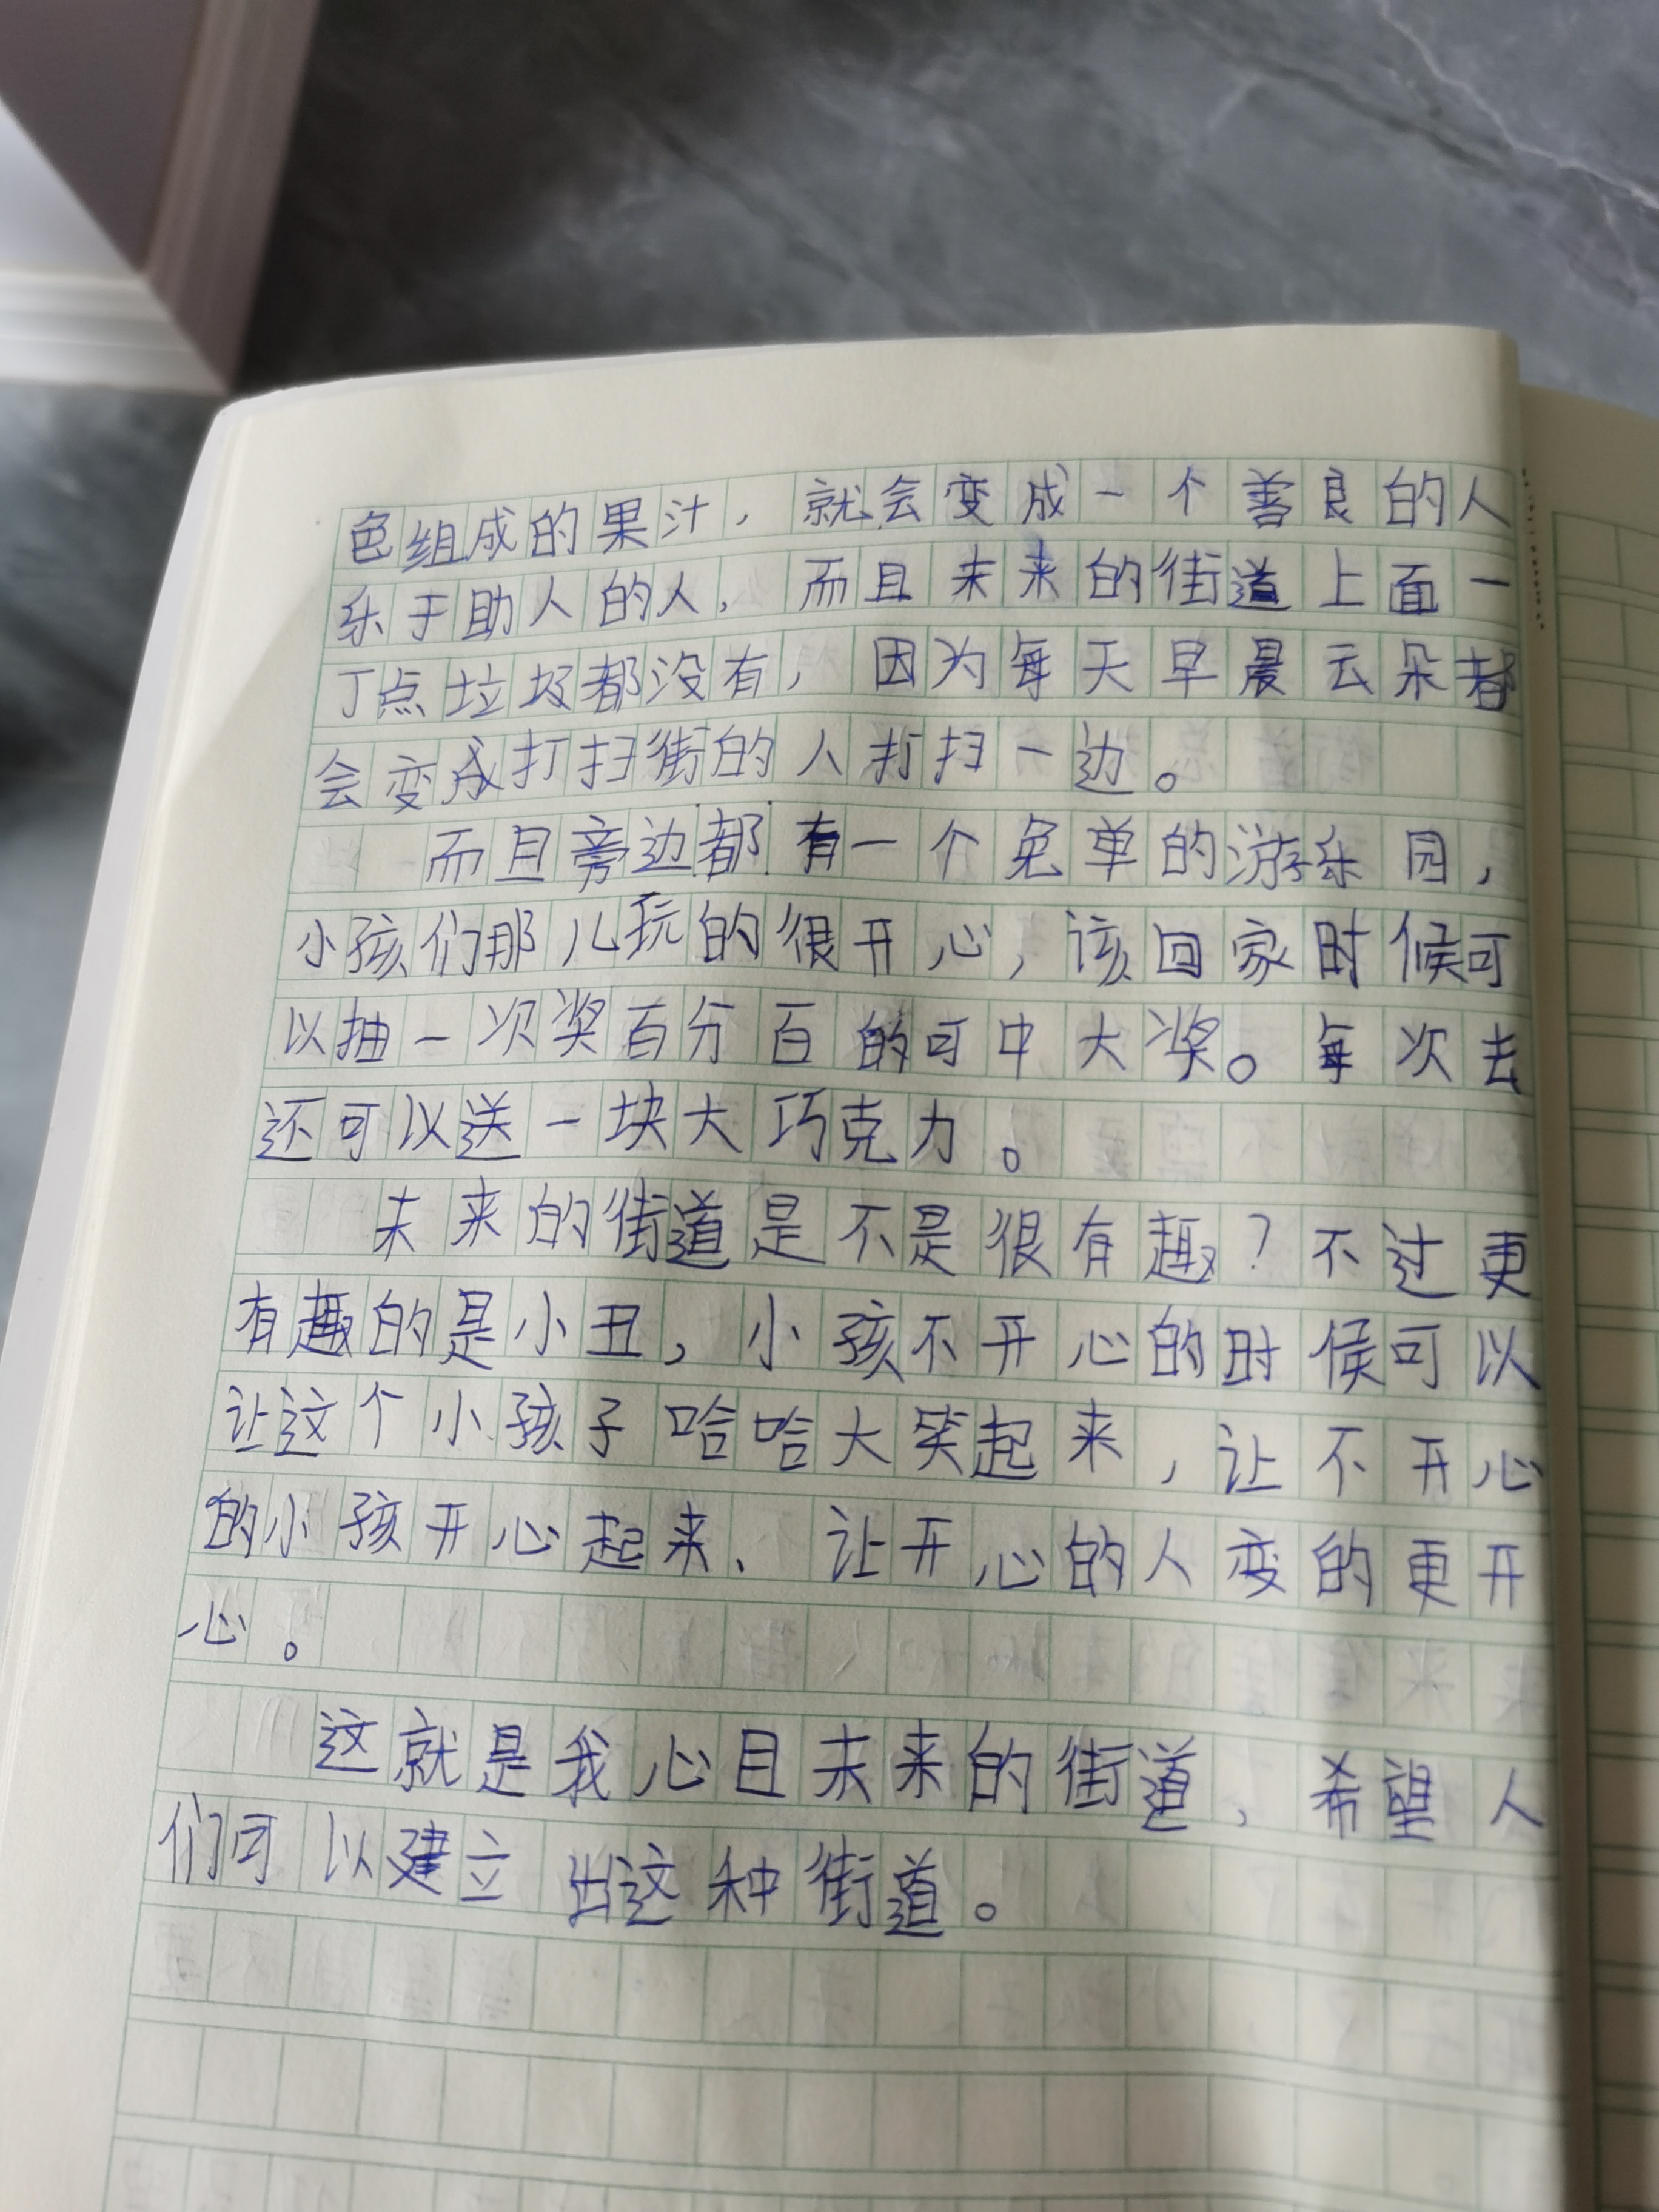 色组成的果汁，就会变成一个善良的人
乐于助人的人，而且未来的街道上面一
丁点垃圾都没有，因为每天早晨云朵都
会变成打扫街的人打扫一边。
而且旁边都有一个免单的游乐园，
小孩们那儿玩的很开心，该回家时候可
以抽一次奖百分百的可中大奖。每次去
还可以送一块大巧克力。
未来的街道是不是很有趣？不过更
有趣的是小丑，小孩不开心的时候可以
让这个小孩子哈哈大笑起来，让不开心
的小孩开心起来、让开心的人变的更开
心。
这就是我心目未来的街道，希望人
们可以建立出这种街道。